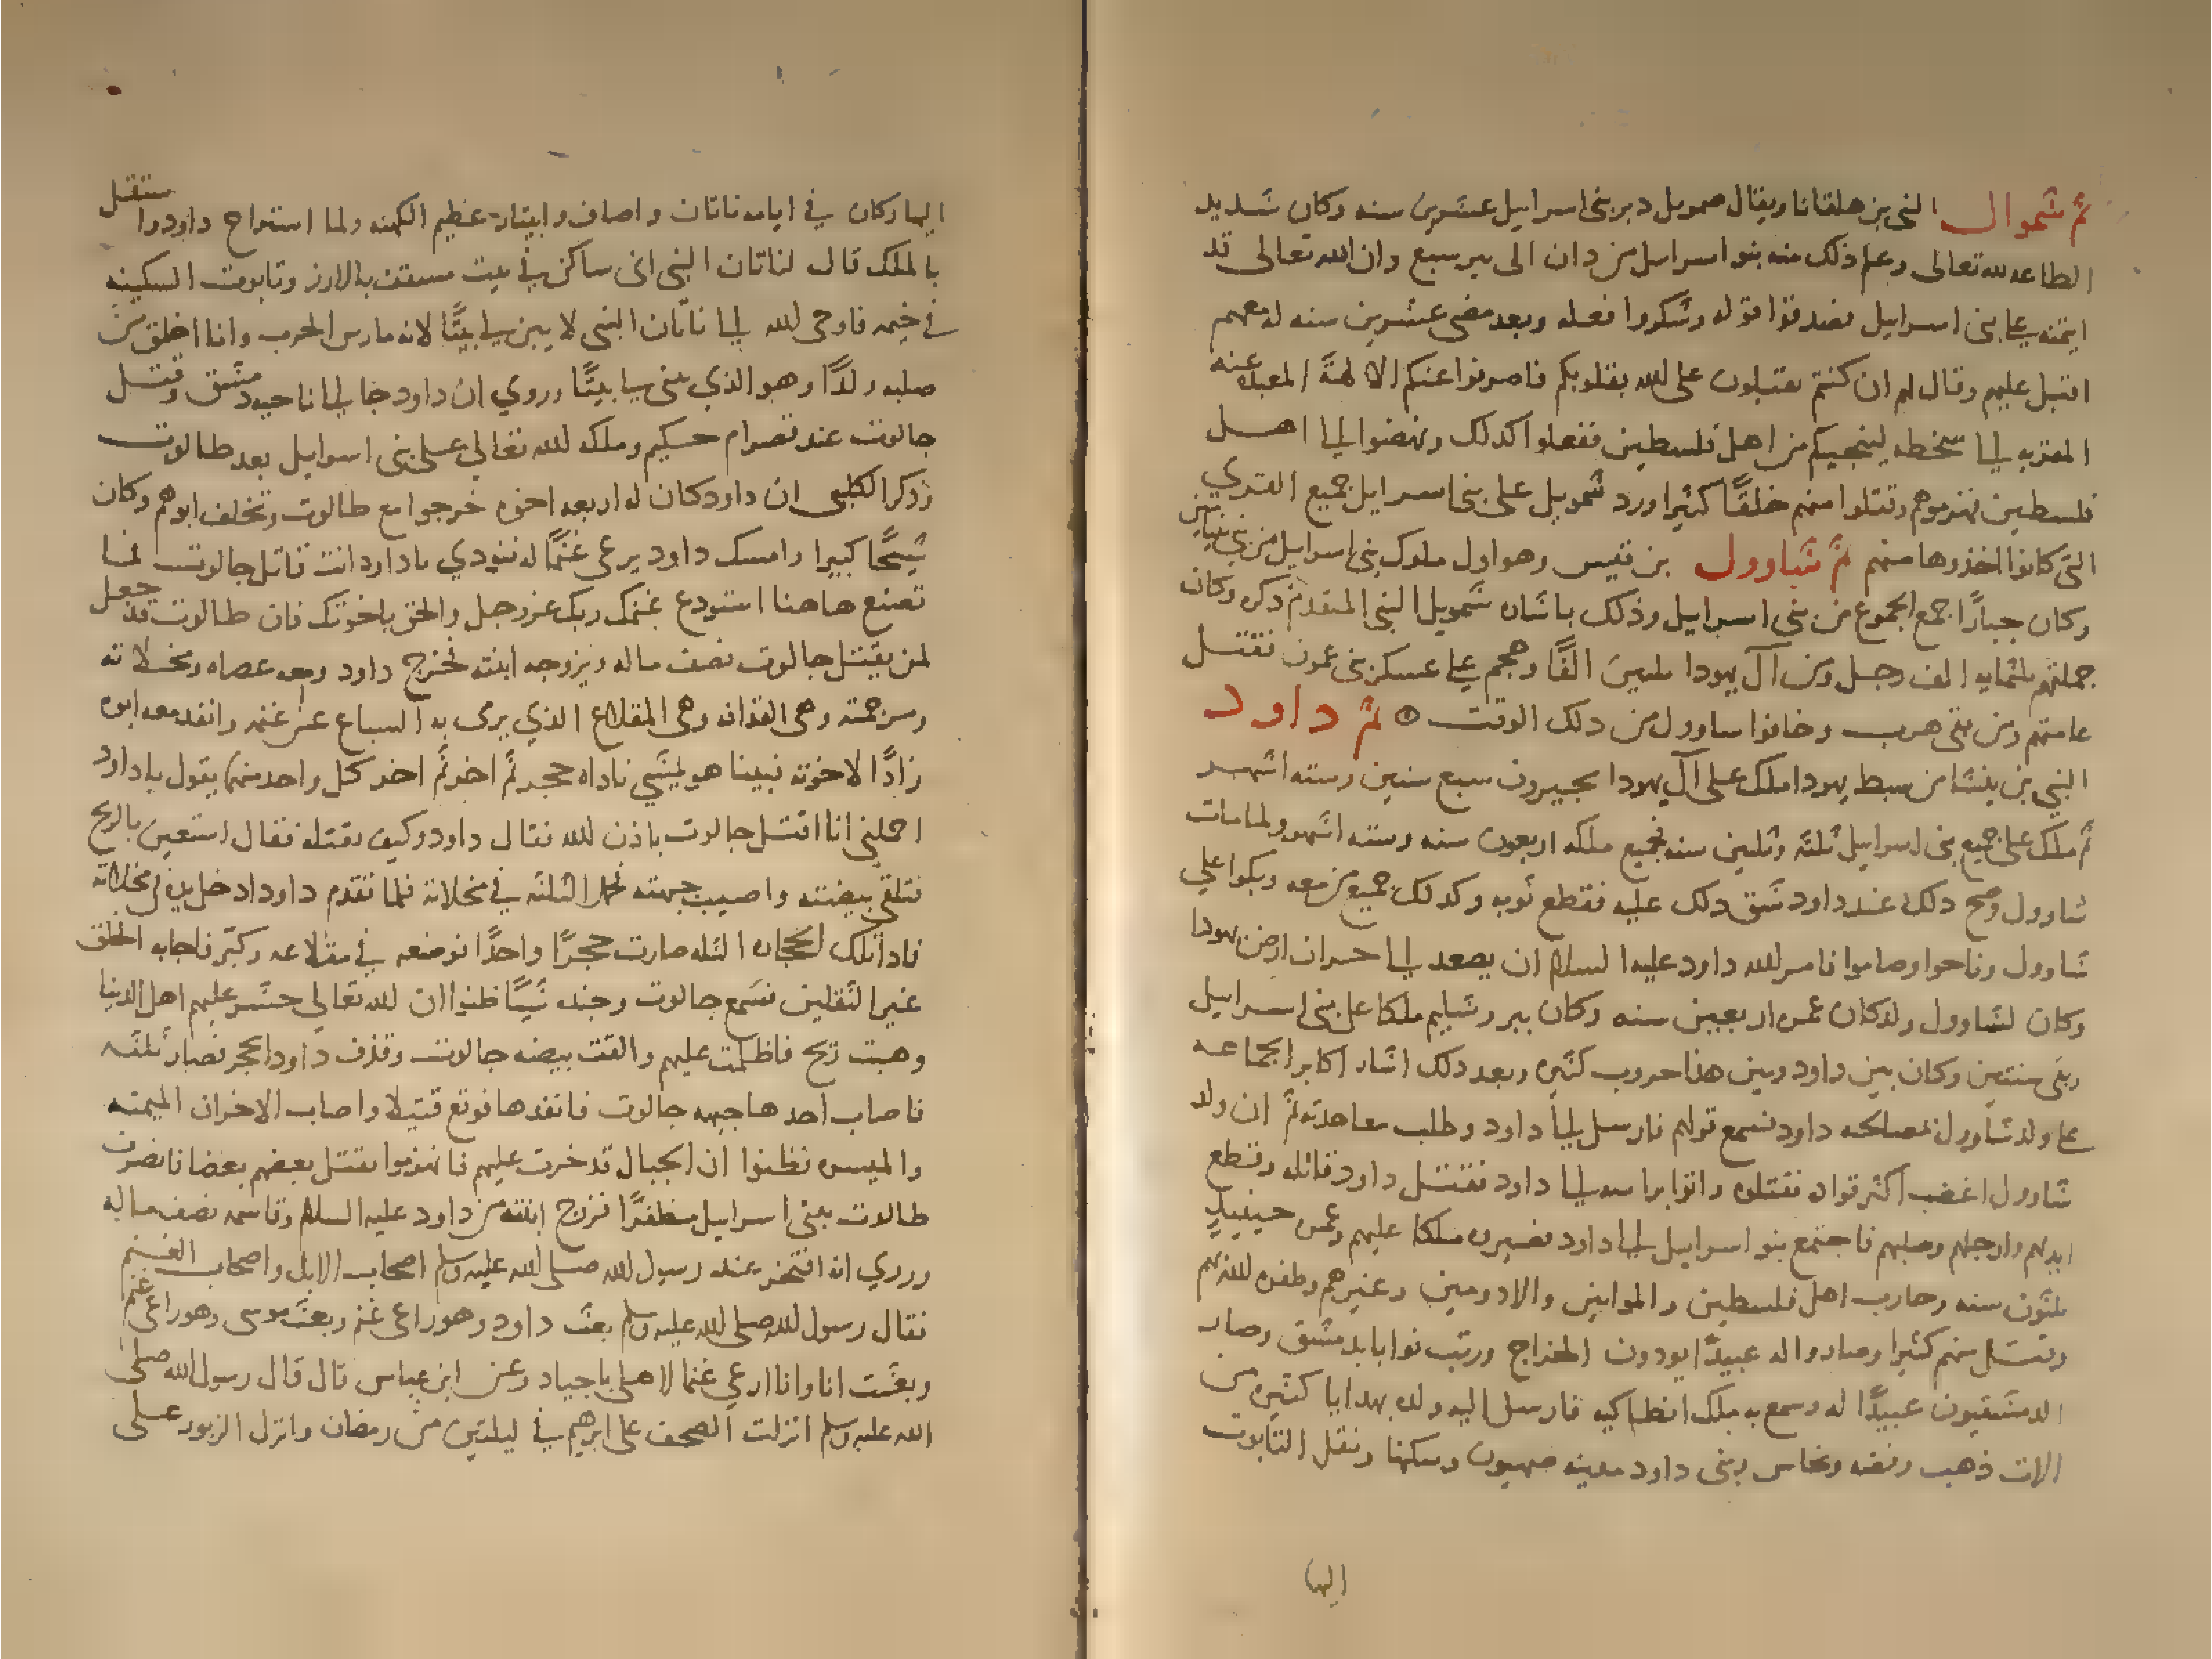 ثم شموال النبي بن هلقانا ويقال صمويل دبر بني اسرايل عشرين سنه وكان شديد
الطاعه لله تعالى وعلم ذلك منه بنو اسرايل من دان الى بير سبع وان الله تعالى قد
ايتمنه على بني اسرايل فصدقوا قوله وشكروا فعله وبعد مضي عشرين سنه له معهم
اقبل عليهم وقال لهم ان كنتم تقبلون على الله بقلوبكم فاصرفوا عنكم الالهة المبعده عنه
المقربه الى سخطه لينجيكم من اهل فلسطين ففعلوا كذلك ونهضوا الى اهل
فلسطين فهزموهم وقتلوا منهم خلقًا كثيرا ورد شمويل على بني اسرايل جميع القري
التي كانوا اخذوها منهم ثم شاوول بن قيس وهو اول ملوك بني اسرايل من بني بنيامين
وكان جبارًا جمع الجموع من بني اسرايل وذلك باشان شمويل النبي المتقدم ذكره وكان
جملتهم ثلثمايه الف رجل ومن آل يهودا ثلثين الفًا وهجم على عسكر بني عمون فقتل
عامتهم ومن بقي هرب وخافوا ساوول من ذلك الوقت ۞ ثم داود
النبي بن ينشا من سبط يهودا ملك على آل يهودا بحبيرون سبع سنين وسته اشهر
ثم ملك على جميع بني اسرايل ثلثة وثلثين سنه فجميع ملكه اربعون سنه وسته اشهر ولما مات
شاوول وصح ذلك عند داود شق ذلك عليه فقطع ثوبه وكذلك جميع من معه وبكوا علي
شاوول وناحوا وصاموا فامر الله داود عليه السلام ان يصعد الى حبران ارض يهودا
وكان لشاوول ولد كان عمره اربعين سنه وكان ببروشليم ملكا على بني اسرايل
وبقي سنتين وكان بين داود وبين هذا حروب كثيره وبعد ذلك اشار اكابر الجماعه
على ولد شاوول بمصالحه داود فسمع قولهم فارسل الى داود وطلب معاهدته ثم ان ولد
شاوول اغضب اكثر قواده فقتلوه واتوا براسه الى داود فقتل داود قاتله وقطع
ايديهم وارجلهم وصلبهم فاجتمع بنو اسرايل الى داود فصيره ملكا عليهم وعمره حينيذٍ
ثلثون سنه وحارب اهل فلسطين والموابين والادومين وغيرهم وظفره الله بهم
وقتل منهم كثيرا وصاروا له عبيدًا يودون الخراج ورتب نوابا بدمشق وصار
الدمشقيون عبيدًا له وسمع به ملك انطاكيه فارسل اليه ولده بهدايا كثيره من
الات ذهب وفضه ونحاس وبنى داود مدينه صهيون وسكنها ونقل التابوت
اليها
اليها وكان في ايامه ناثان واصاف وابيثار عظيم الكهنه ولما استراح داود واستقل
بالملك قال لناثان النبي اني ساكن في بيت مسقف بالارز وتابوت السكينه
في خيمه فاوحى الله الى ناثان النبي لا يبن لي بيتًا لانه مارس الحرب وانا اخلق من
صلبه ولدًا وهو الذي يبني لي بيتًا وروي ان داود جا الى ناحيه دمشق وقتل
جالوت عند قصر ام حكيم وملكه الله تعالي على بني اسرايل بعد طالوت
وذكر الكلبى ان داود كان له اربعه اخوه خرجوا مع طالوت وتخلف ابوهم وكان
شيخًا كبيرا وامسك داود يرعى غنمًا له فنودي ياداود انت قاتل جالوت فما
تصنع هاهنا استودع غنمك ربك عز وجل والحق باخوتك فان طالوت قد جعل
لمن يقتل جالوت نصف ماله ويزوجه ابنته فخرج داود ومعه عصاه ومخلاته
ومرجمته وهي القذافه وهي المقلاع الذي يرمى به السباع عن غنمه وانفد معه ابوه
زادًا لاخوته فبينا هو يمشي ناداه حجر ثم اخر ثم اخر كل واحد منها يقول ياداود
احملني انا اقتل جالوت باذن الله فقال داود وكيف تقتله فقال استعين بالريح
فتلقي بيضته واصيب جبهته فحمل الثلثه في مخلاته فلما تقدم داود ادخل يده في مخلاته
فاذا تلك الحجاره الثلثه صارت حجرًا واحدًا فوضعه في مقلاعه وكبر فاجابه الخلق
غير الثقلين فسمع جالوت وجنده شيًا ظنوا ان الله تعالي حشر عليهم اهل الدنيا
وهبت ريح فاظلمت عليهم والقت بيضه جالوت وقذف داود الحجر فصار ثلثه
فاصاب احدها جبهه جالوت فانفدها فوقع قتيلا واصاب الاخران الميمنه
والميسره فظنوا ان الجبال قد خرت عليهم فانهزموا يقتل بعضهم بعضا فانصرف
طالوت ببني اسرايل مظفرًا فزوج ابنته من داود عليه السلام وقاسمه نصف ماله
وروي انه افتخر عند رسول الله صلى الله عليه وسلم اصحاب الابل واصحاب الغنم
فقال رسول الله صلى الله عليه وسلم بعث داود وهو راعى غنم وبعث موسى وهو راعى غنم
وبعثت انا وانا ارعي غنما لاهلى باجياد وعن ابن عباس قال قال رسول الله صلى
الله عليه وسلم انزلت الصحف على ابرهيم في ليلتين من رمضان وانزل الزبور على